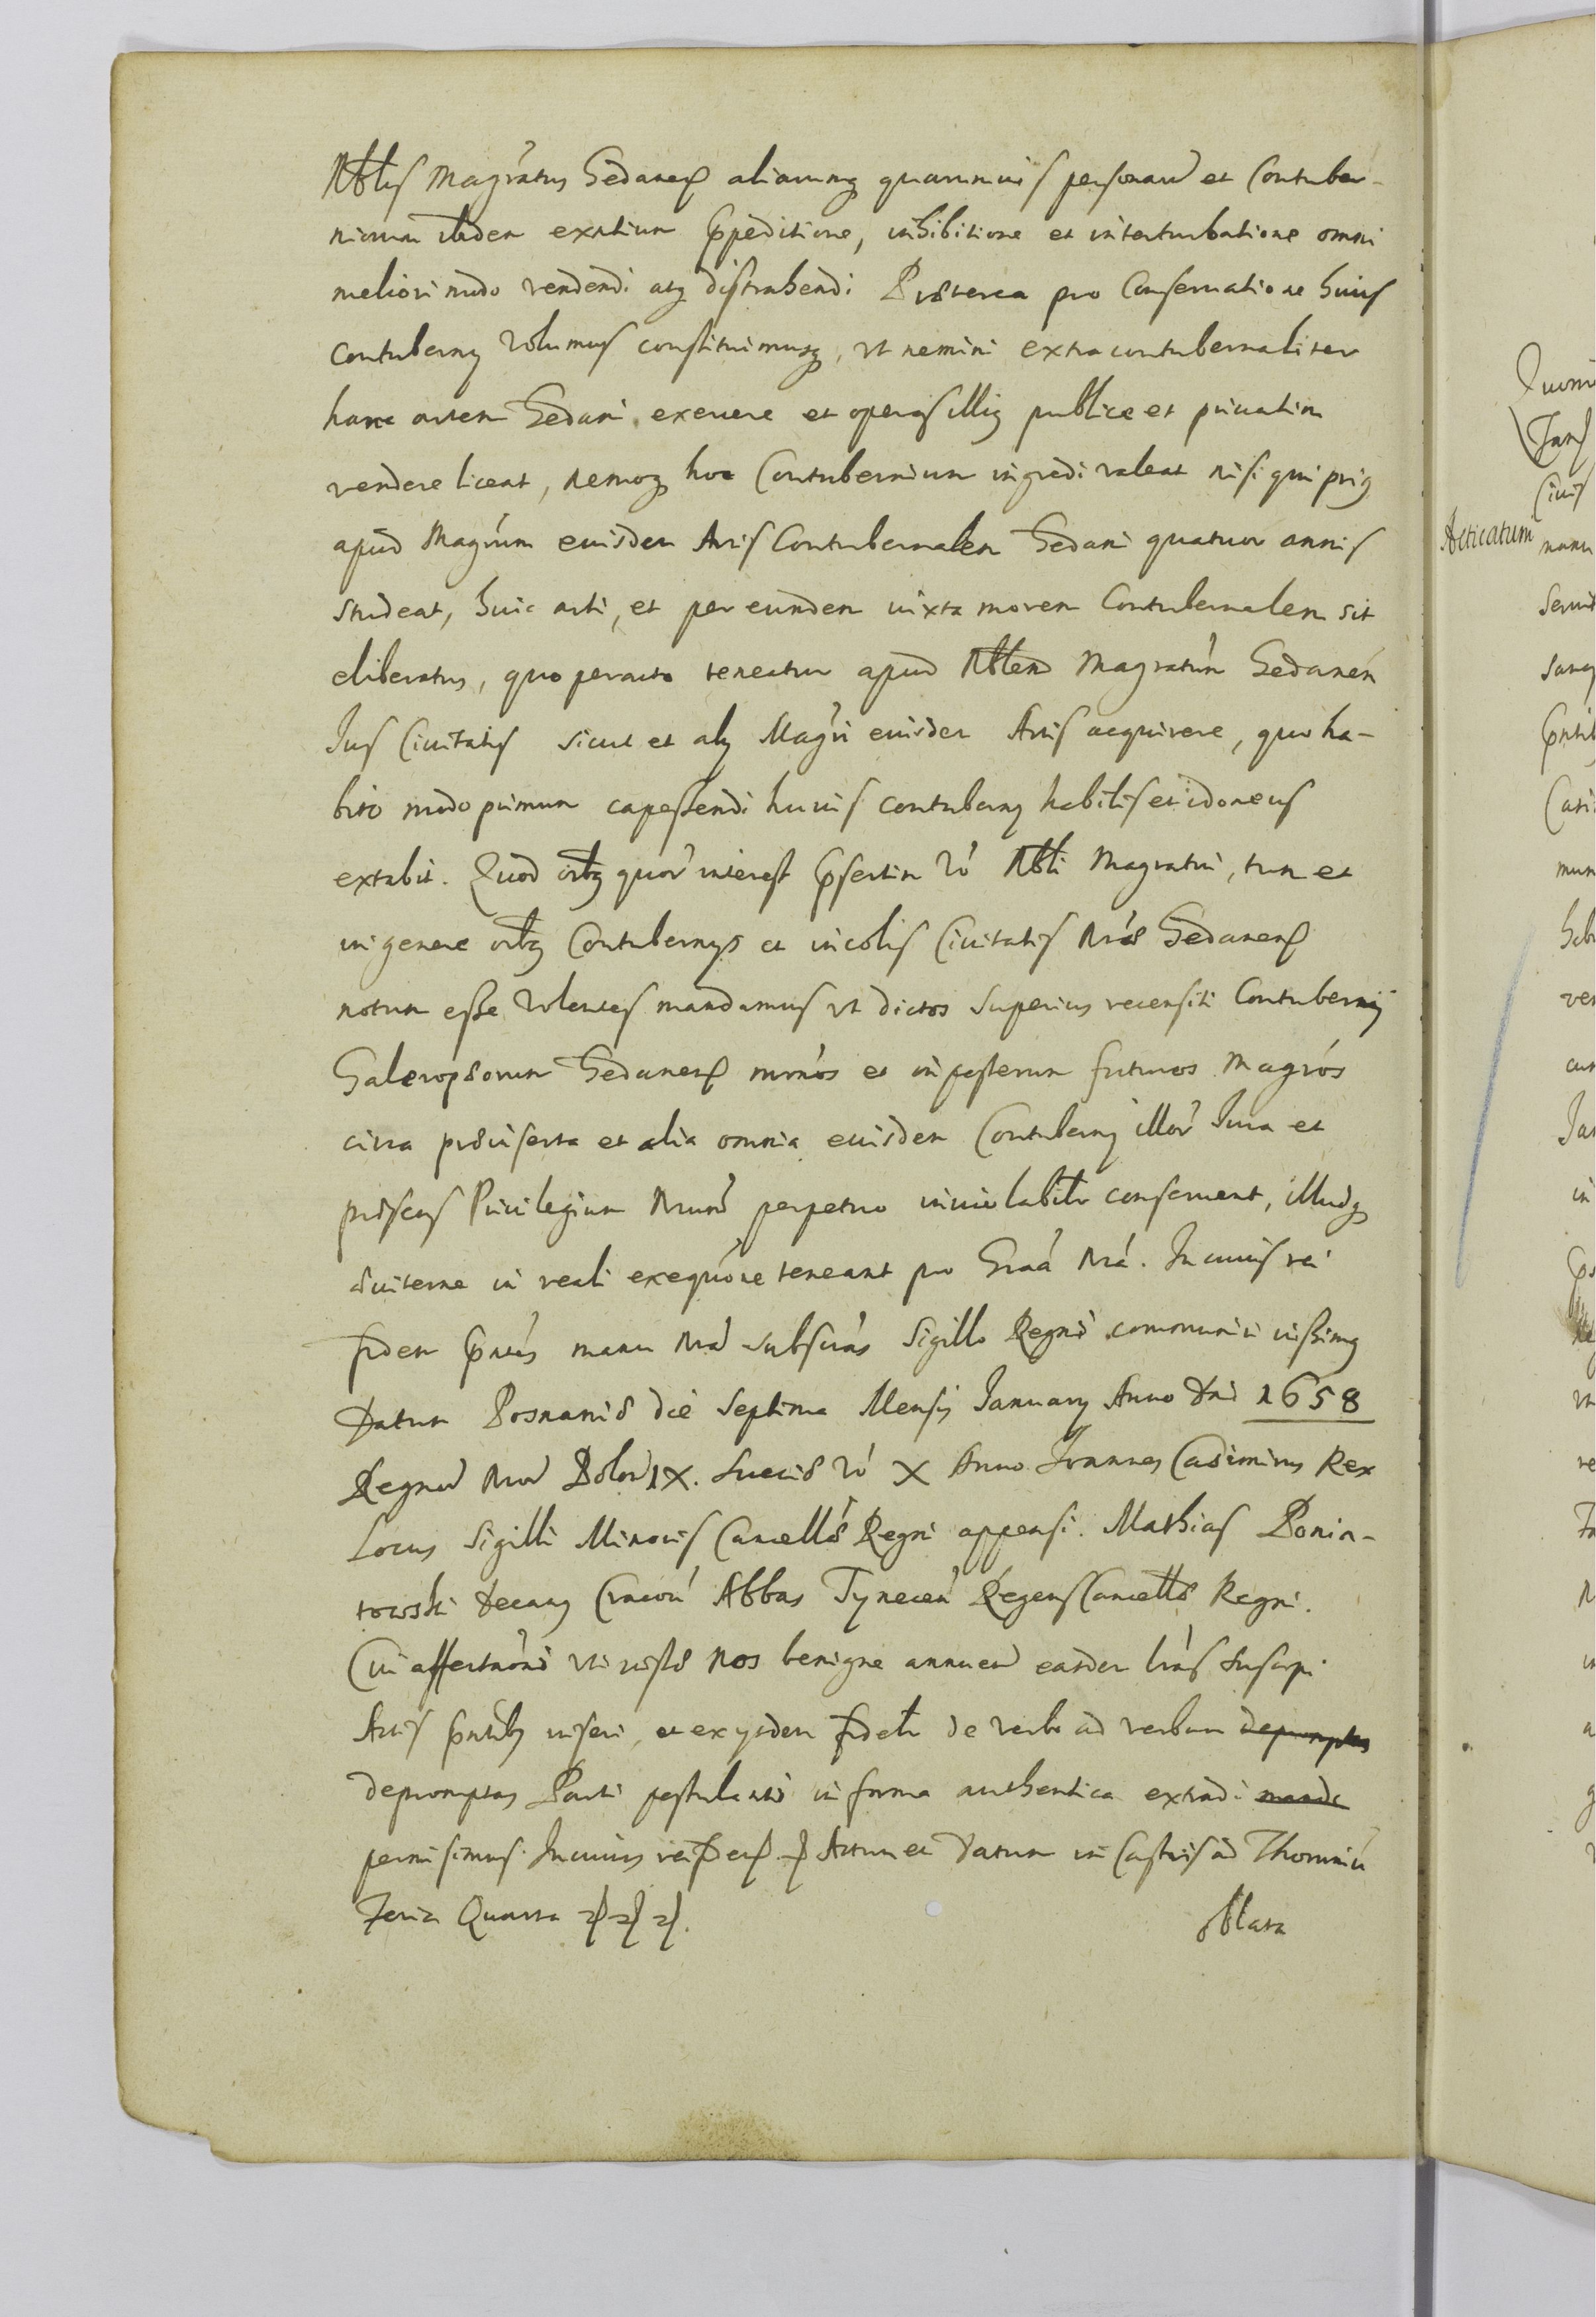 Nblis Magr̃atus Gedanen̄ aliarumq̢ quarumuis personarũ et Contuber-
niorum ibidem exntium Ꝓpeditione, inhibitione et interturbatione omni
meliori modo vendendi atq̢ distrahendi Præterea pro Conseruatione huius
Contubernij volumus constituimusq̢, vt nemini extracontubernaliter
hanc artem Gedani exercere et operas illiq̢ publice et priuatim
vendere liceat, nemoq̢ hoc Contubernium ingredi valeat nisi qui priq̢
apud Magr̃um eiusdem Artis Contubernalem Gedani quatuor annis
studeat, huic arti, et per eundem iuxta morem Contubernalem sit
eliberatus, quo peracto teneatur apud Nblem Magratũm Gedanen̄
Jus Ciuitatis sicut et alij Magr̃i eiusdem Artis acquirere, quo ha-
bito modo primum capessendi huius contubernij habilis et idoneus
extabit. Quod oĩbq̢ quor̃ interest Ꝓsertim v̊o Nbli Magratui, tum et
in genere oĩbq̢ Contubernijs et incolis Ciuitatis Nr̃æ Gedanen̄
notum esse volentes mandamus vt dictos superius recensiti Contubernij
Galeropæorum Gedanen̄ mr̃nos et inposterum futuros Magr̃os
circa præinserta et alia omnia eiusdem Contubernij illor̃ Jura et
præsens Priuilegium Nrum̃ perpetuo inuiolabilr̃ conseruent, illudq̢
æuiterne in reali exequũone teneant pro Gr̃aã Nrã. In cuius rei
fidem Ꝓntes̃ manu Nrã subscr̃as Sigillo Regni communiri iussimq̢
Datum Posnaniæ die Septima Mensis Januarij Anno Dni 1658
Regnor̃ Nror̃ Polon̄ IX. Sueciæ v̊o X Anno Joannes Casimirus Rex
Locus Sigilli Minoris Cancellr̃æ Regni appensi. Mathias Ponia-
towski Decanq̢ Cracou̇ Abbas Tynecen̄ Regens Cancellr̃æ Regni.
Cui affectaõni vti iustæ nos benigne annuen̄ easdem lr̃as suscipi
Actis Ꝓntibq̢ inseri, et ex ijsdem fidelr̃ de verbo ad verbum depromptas
depromptas Parti postulanti in forma authentica extradi
permisimus. In cuius rei fidem Actum et Datum in Castris ad Thoruniũ
Feria Quarta
oblata
Acticatum